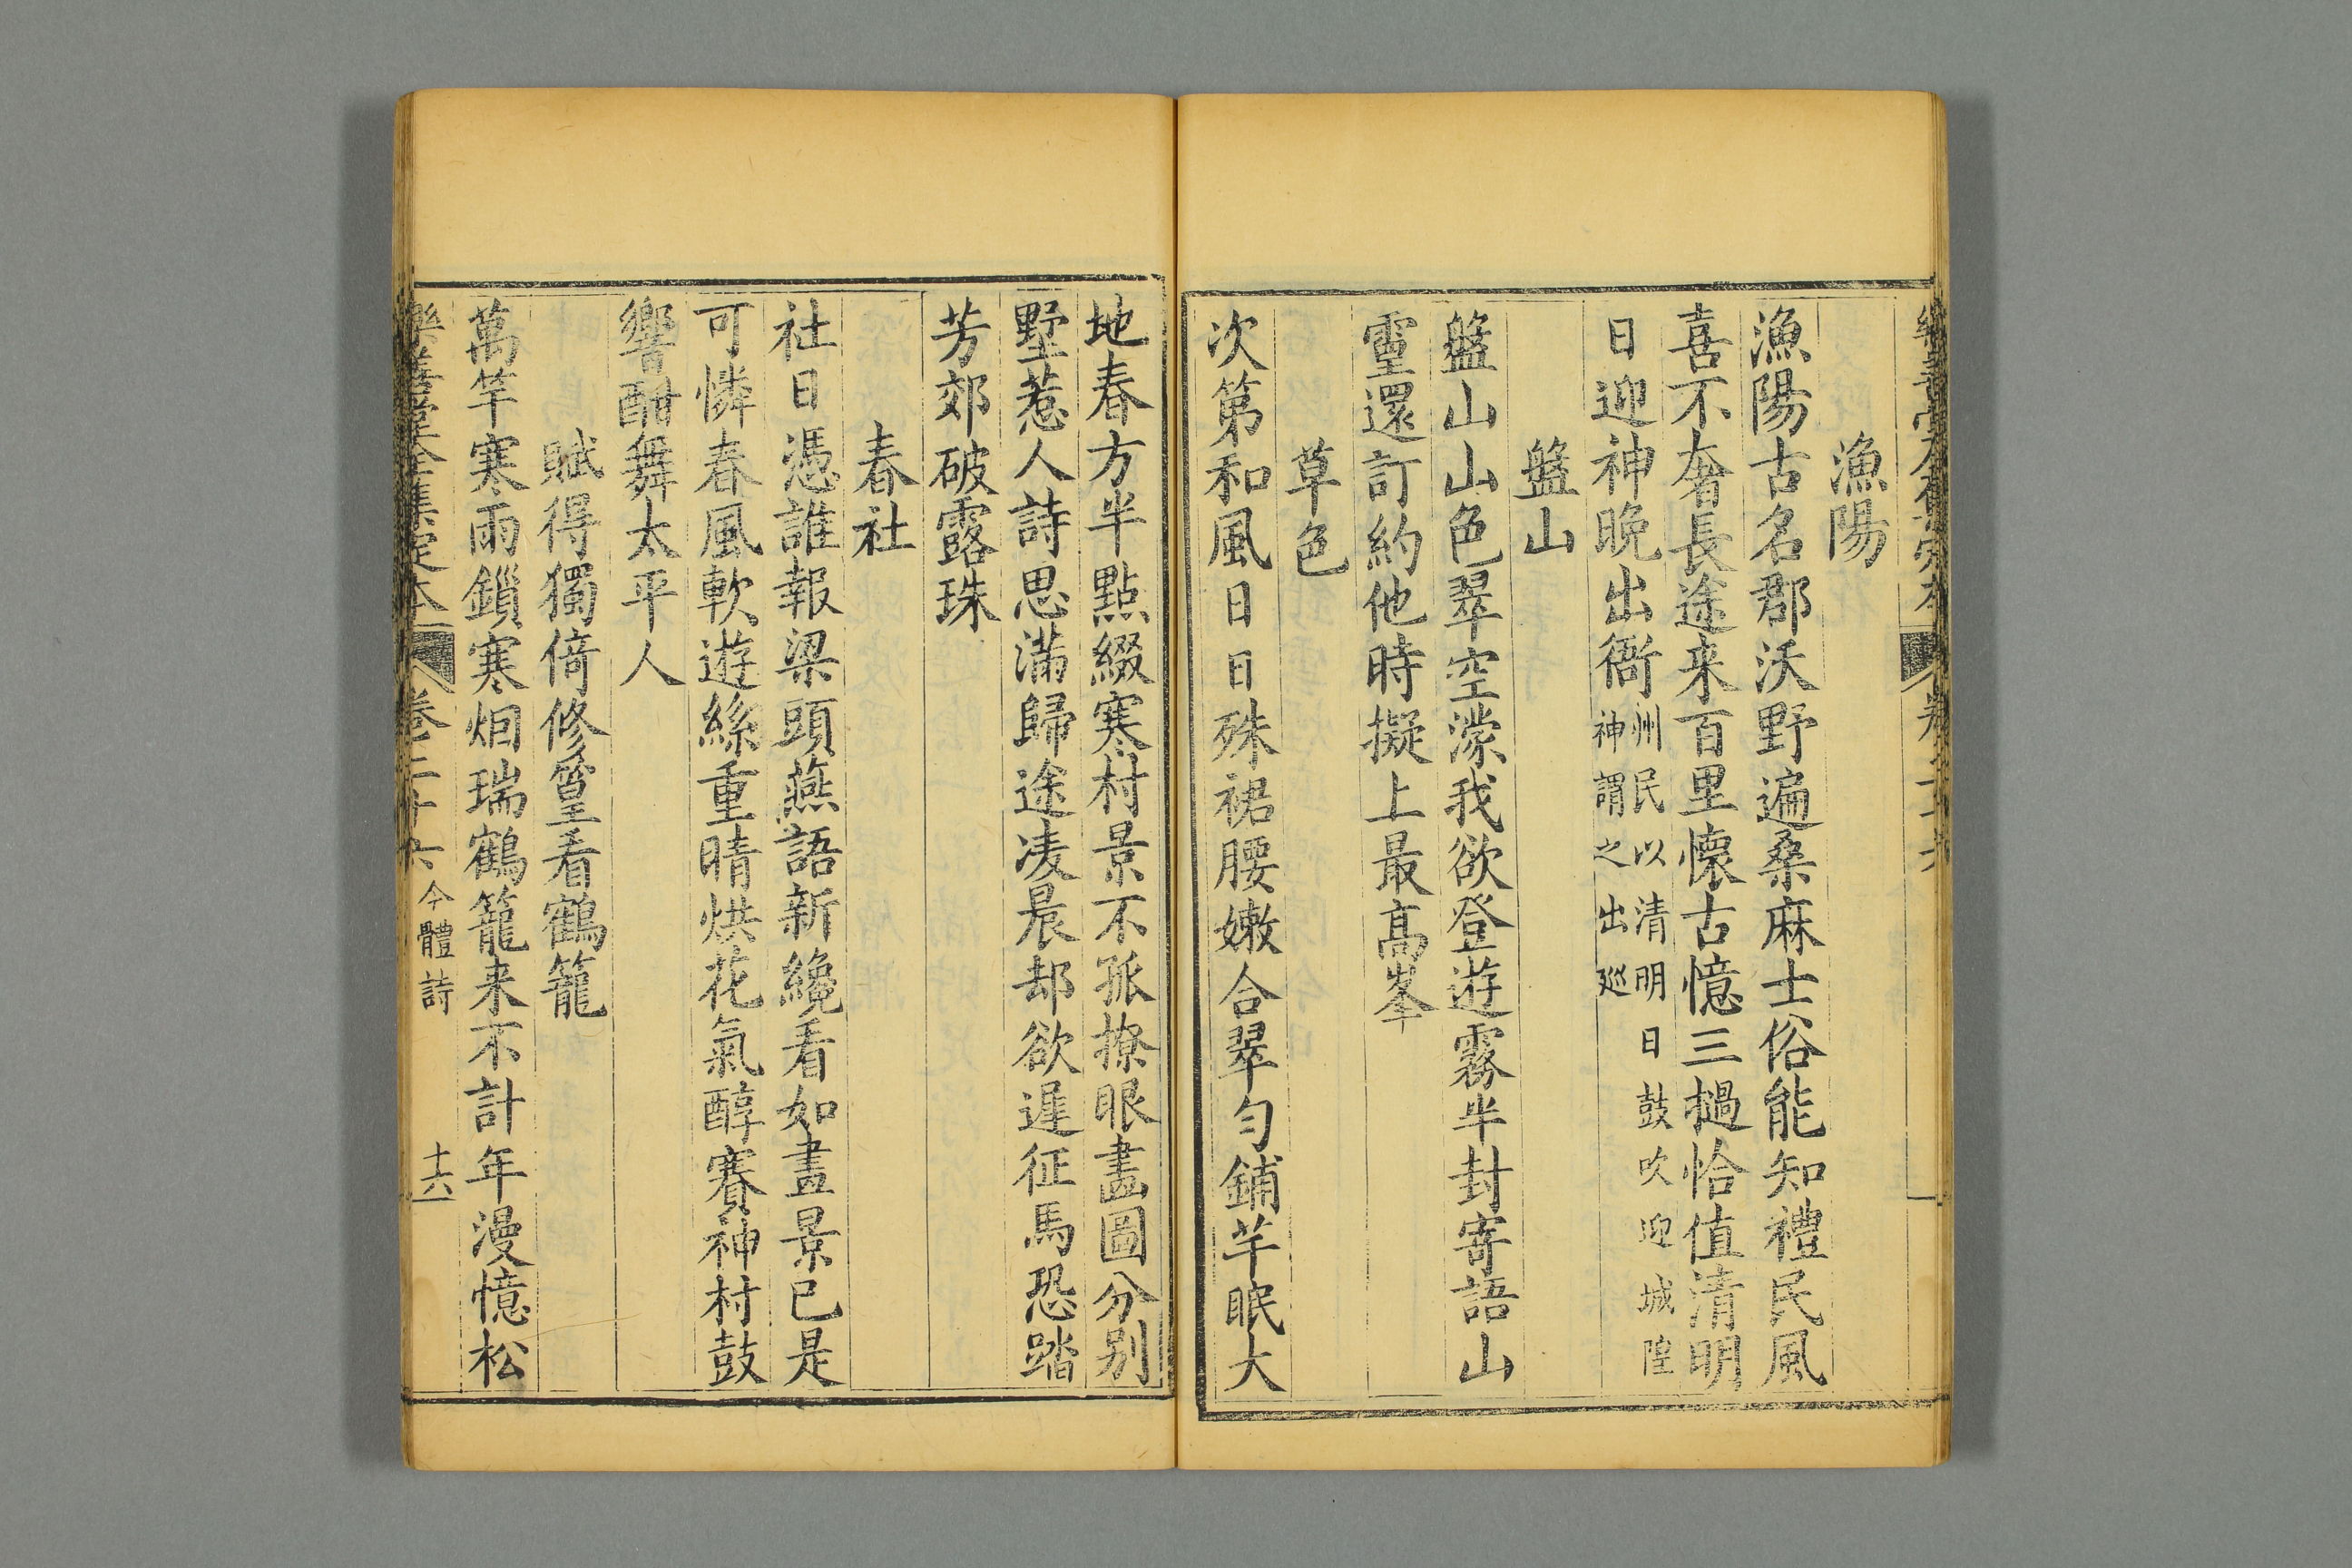 漁陽
漁陽古名郡沃野遍桑麻士俗能知禮民風
喜不奢長途来百里懷古憶三撾恰值清明
日迎神晩出衙州民以清明日鼓吹迎城隍
神謂之出廵
盤山
盤山山色翠空濛我欲登遊霧半封寄語山
靈還訂約他時擬上最高峯
草色
次第和風日日殊裙腰嫩合翠勻鋪芊眠大
地春方半點綴寒村景不孤撩眼畫圖分别
墅惹人詩思滿歸途凌晨却欲遲征馬恐踏
芳郊破露珠
春社
社日憑誰報梁頭燕語新纔看如畫景已是
可憐春風軟遊絲重晴烘花氣醇賽神村鼓
響酣舞太平人
賦得獨倚修篁看鶴籠
萬竿寒雨鎻寒烟瑞鶴籠来不計年漫憶松
樂善堂全集定本 卷二十六 今體詩 十六